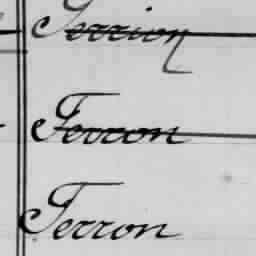 Terrion
Terron
Terron